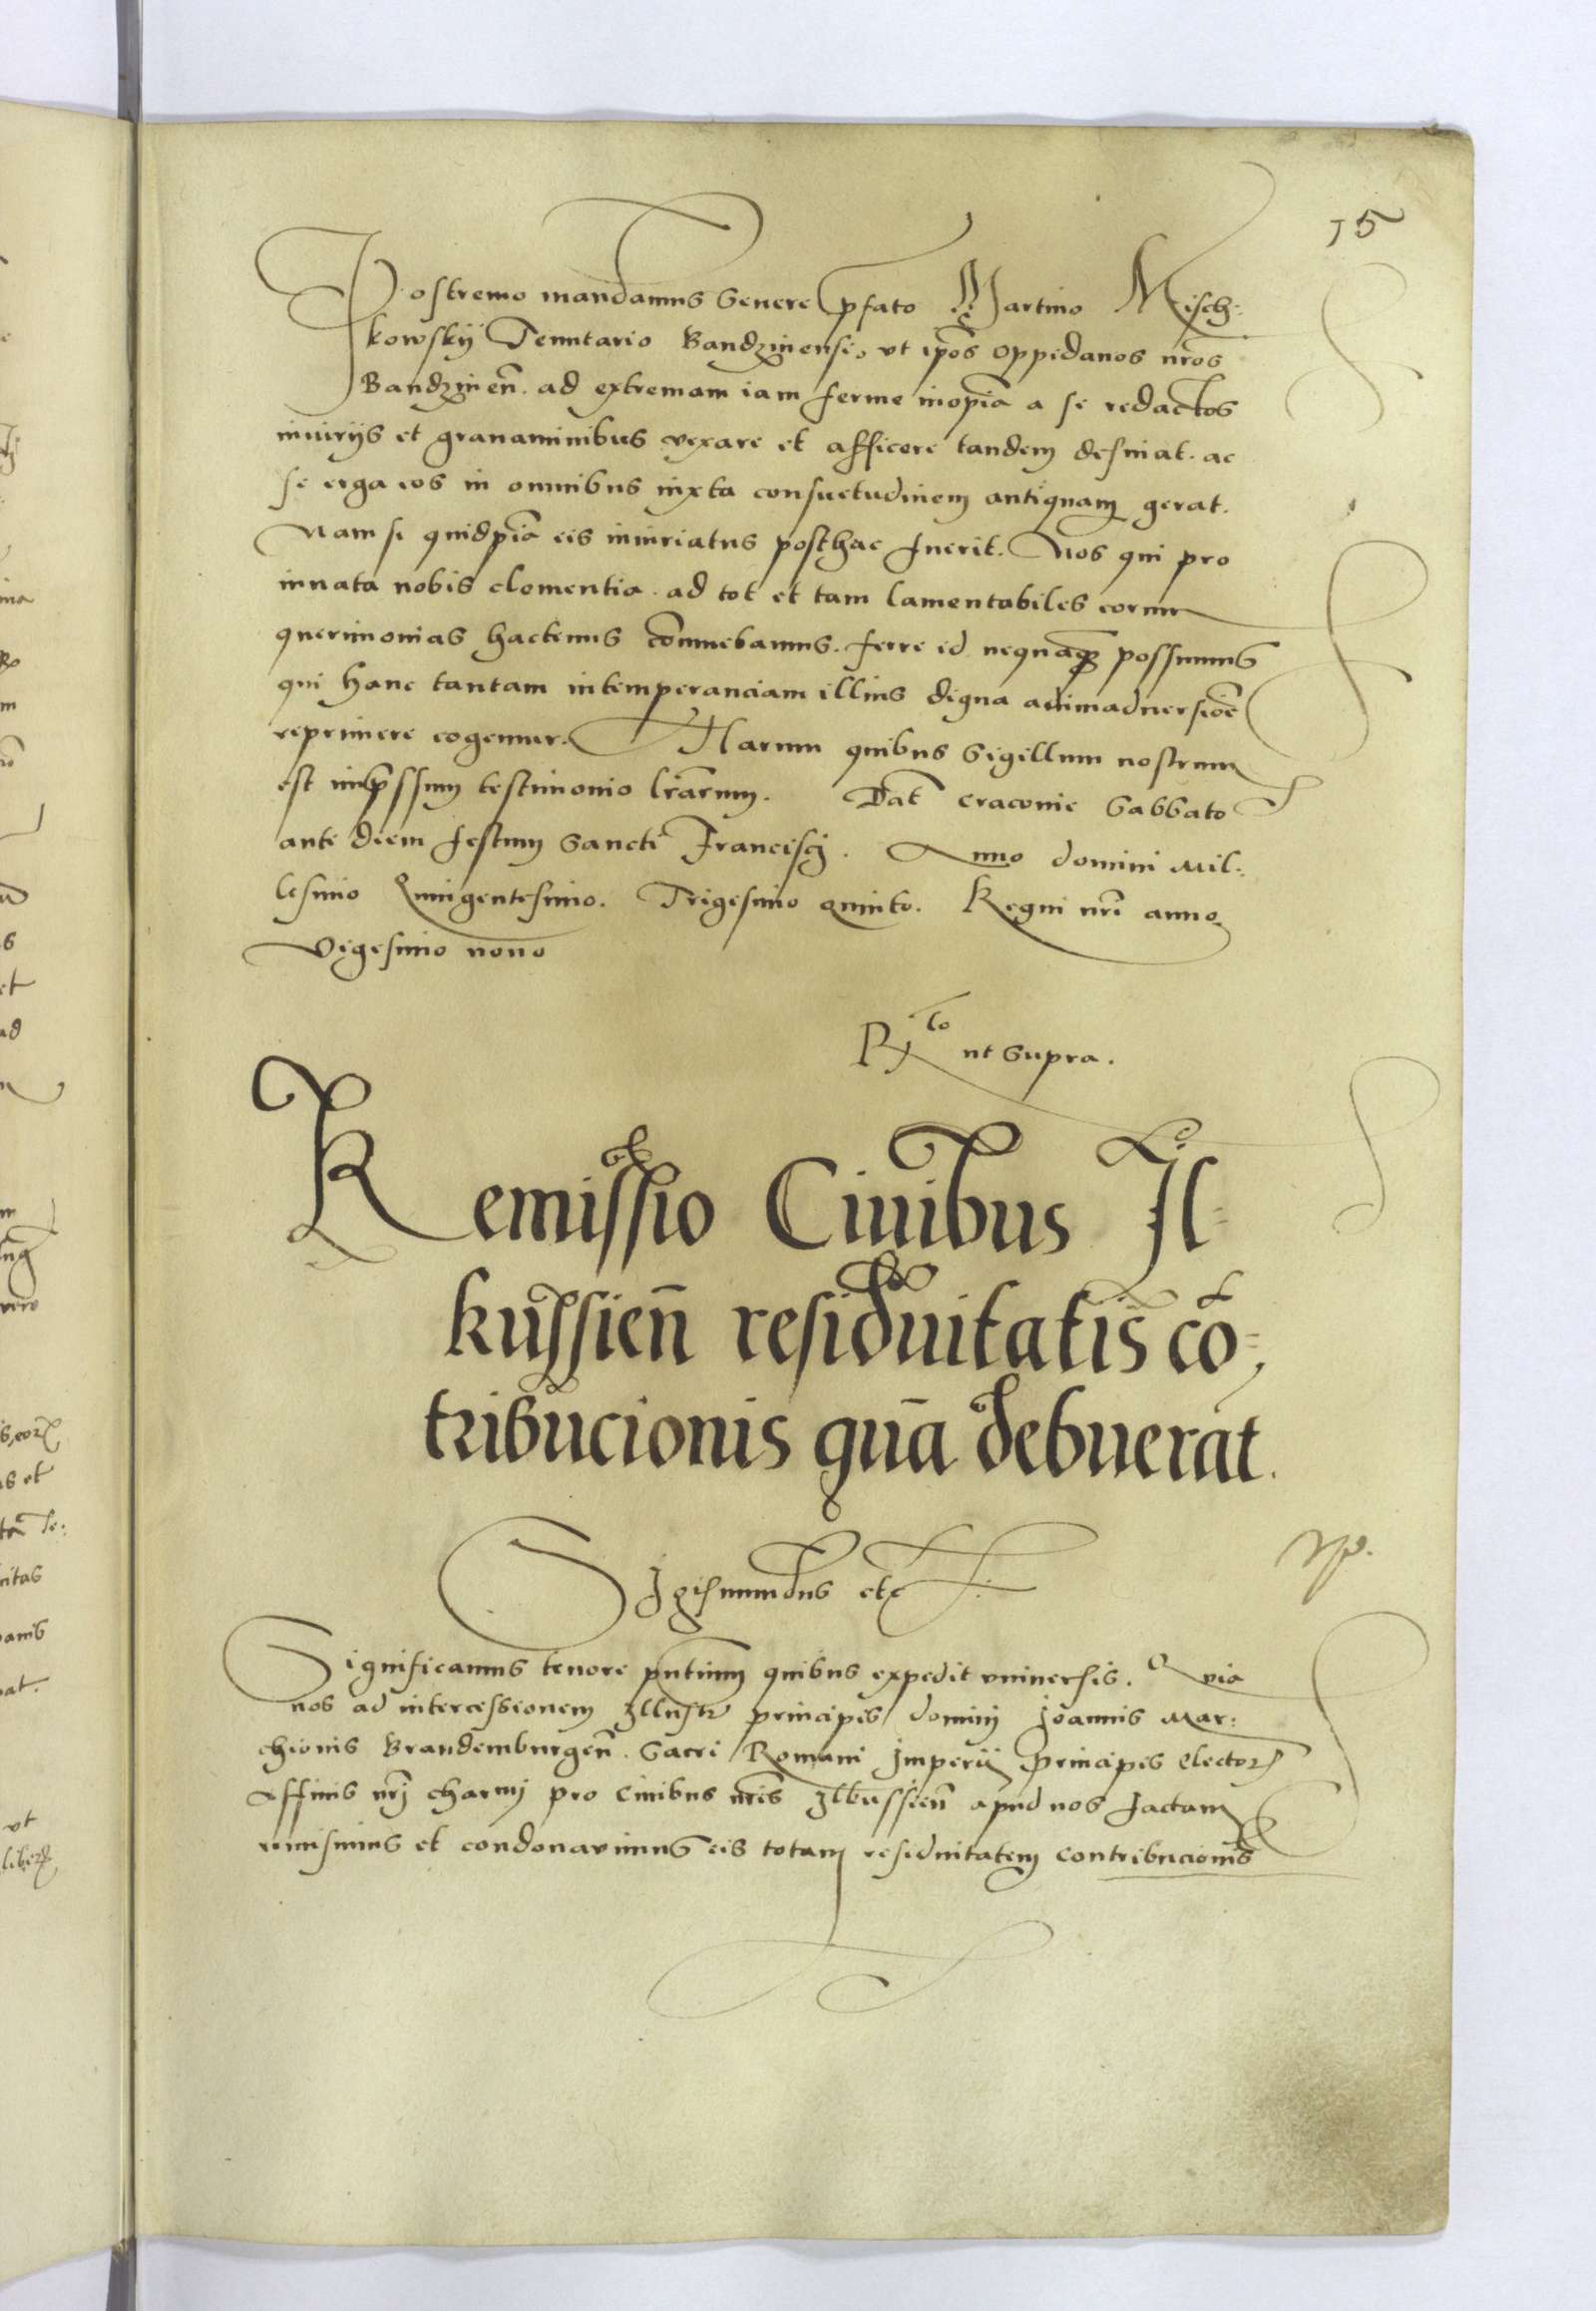 15
Postremo mandamus severe p̄fato Martino Misch:
kowskij Tenutario Bandzinensi, vt ip̄os oppidanos nr̄os
Bandzineñ. ad extremam iam ferme inopiā a se redactos
iniurijs et grauaminibus vexare et afficere tandem desinat. ac
se erga eos in omnibus iuxta consuetudinem antiquam gerat.
Nam si quidpiā eis iniuriatus posthac fuerit. Nos qui pro
innata nobis clementia. ad tot et tam lamentabiles eorum
querimonias hactenus cōniuebamus. ferre id nequaqȝ possumus
qui hanc tantam intemperanciam illius digna animaduersiōe
reprimere cogemur. Harum quibus Sigillum nostrum
est imp̄ssum testimonio lr̄arum. Dat̄ Cracouie Sabbato
ante diem festum Sancti Francisci. Anno domini Mil:
lesimo Quingentesimo. Trigesimo quinto. Regni nr̄i anno
Vigesimo nono
Rlo ut supra.
Remissio Ciuibus Il=
kussień residuitatis cō=
tribucionis quā debuerāt.
Sigismundus etc
Significamus tenore pn̄tium quibus expedit vniuersis. Quia
nos ad intercessionem Illustr principis domini Joannis Mar:
chionis Brandemburgeñ. Sacri Romani Imperij Principis Elector
Affinis nr̄i charmi pro Ciuibus nr̄is Ilkussieñ apud nos factam
remisimus et condonauimus eis totam residuitatem contribucionis